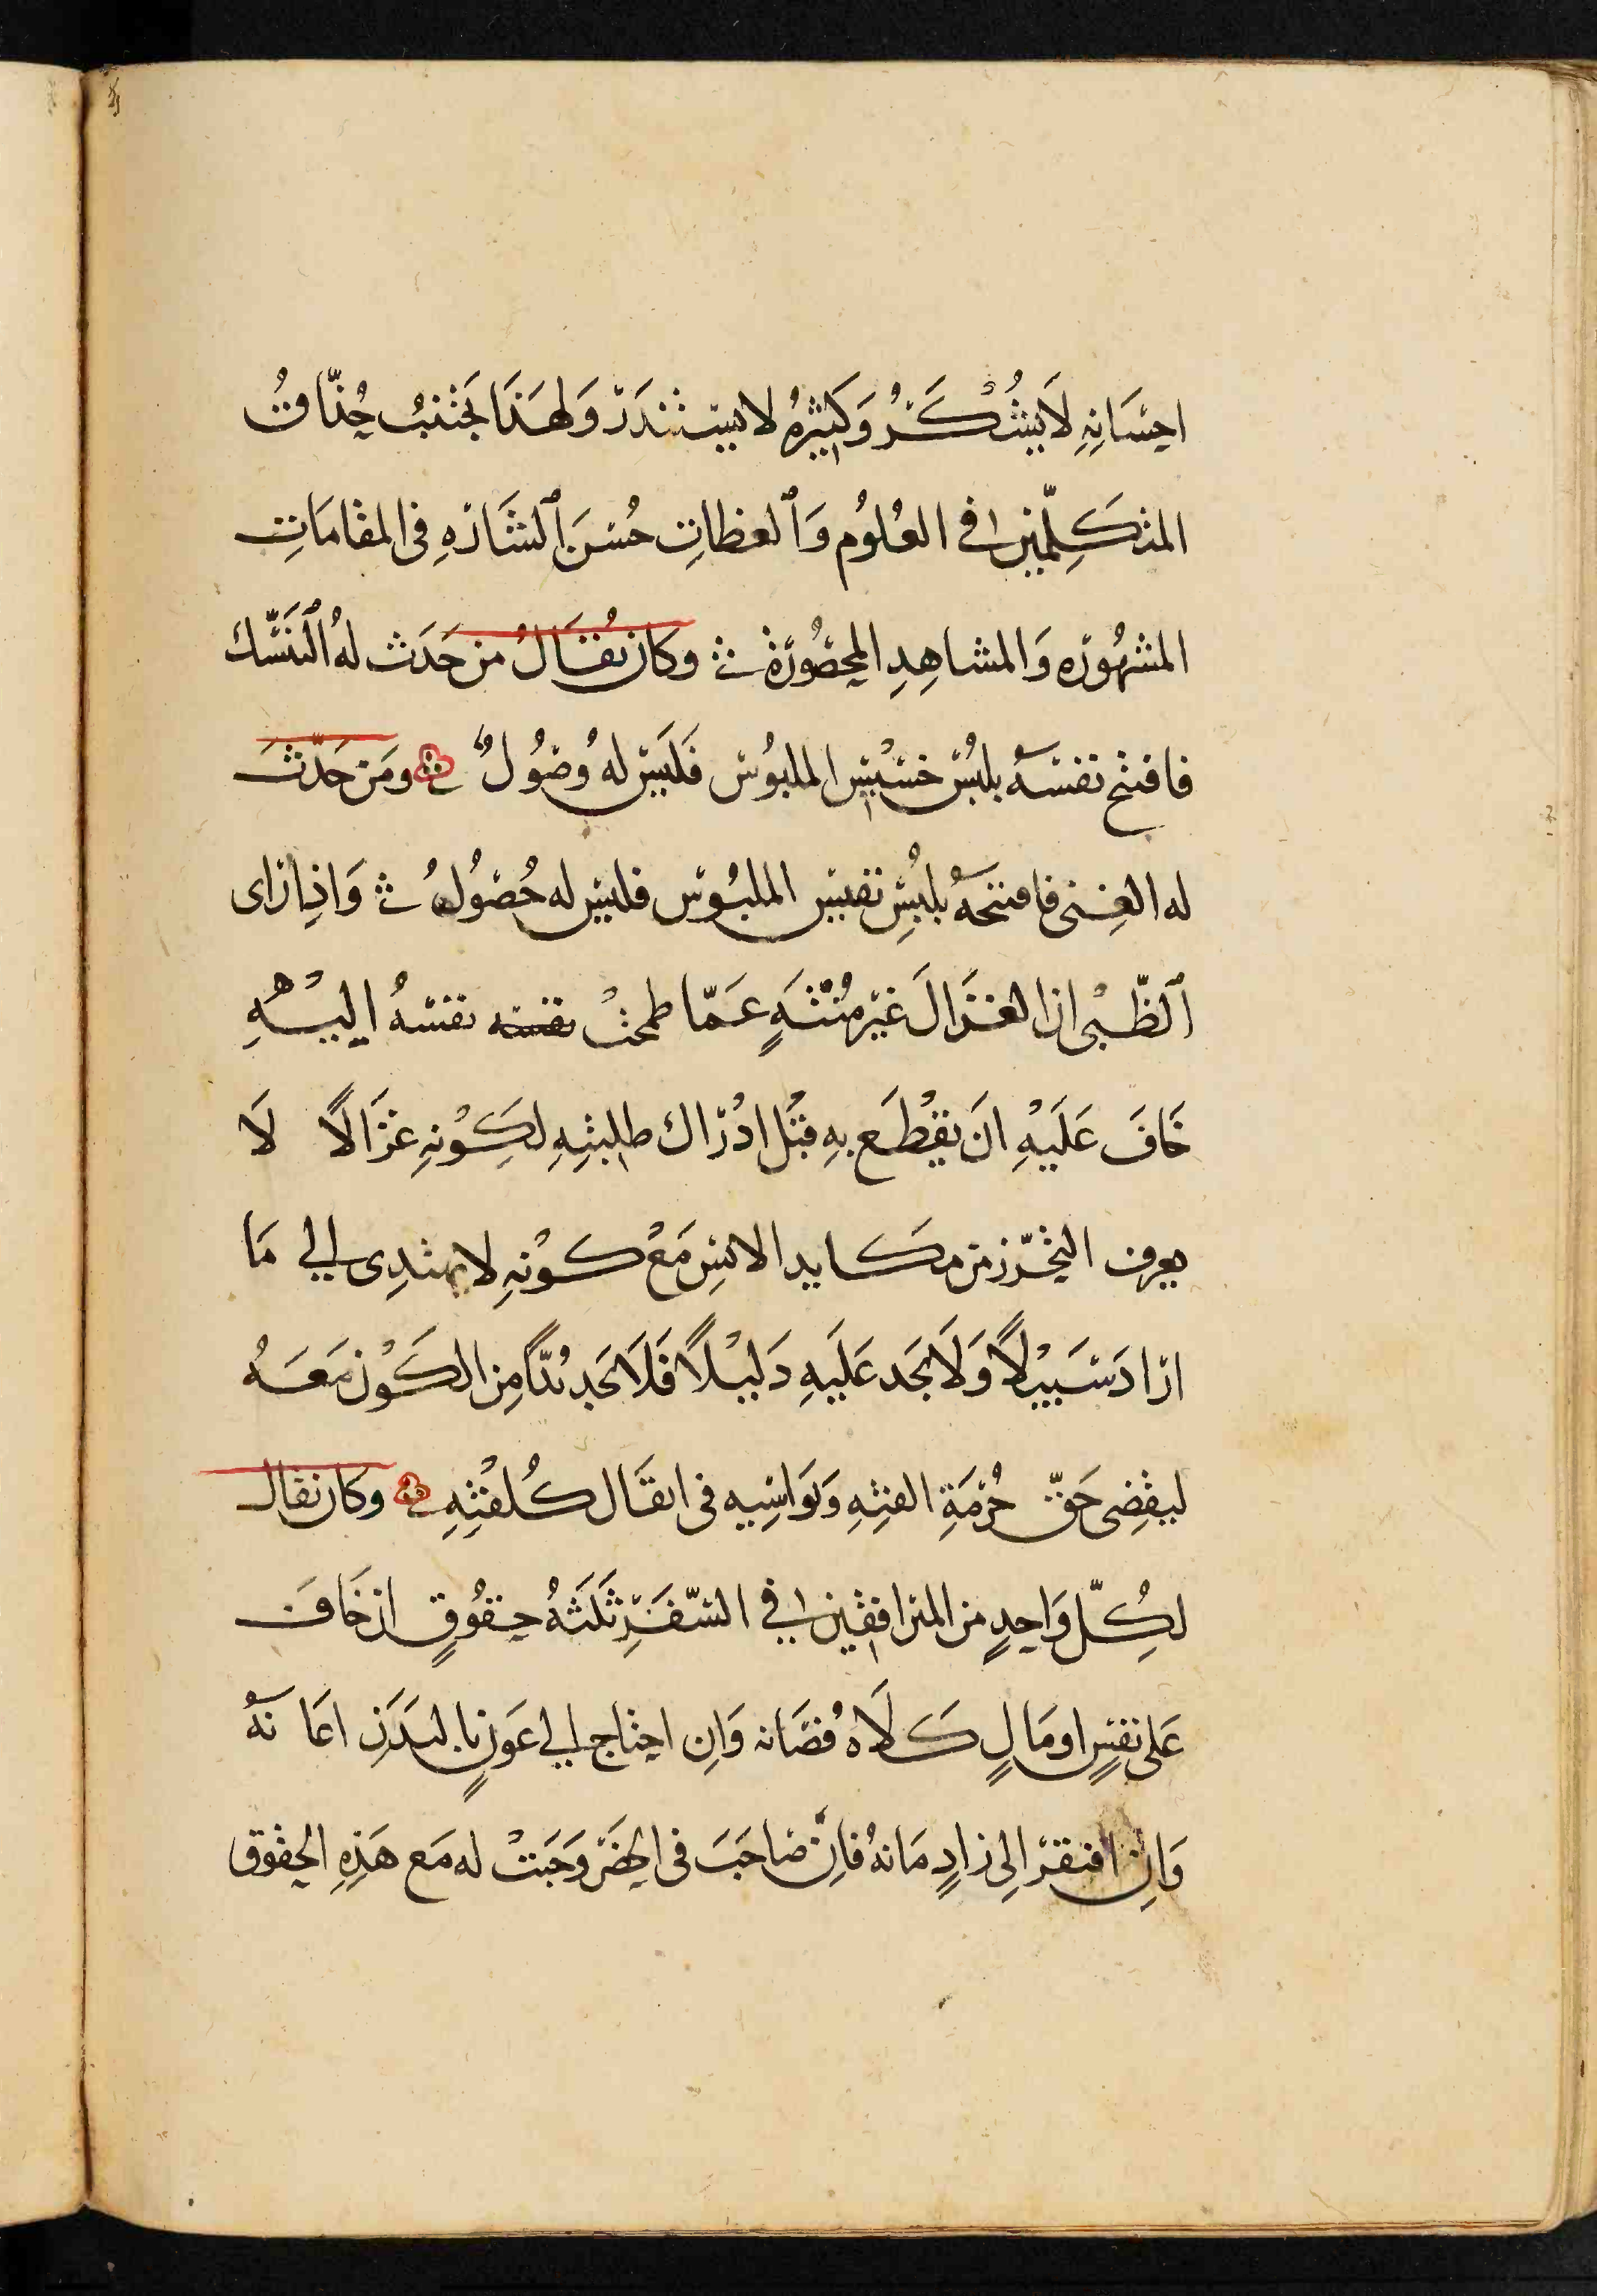 احسَانِهِ لَا يُشْكَرُ وَكَثِيرُهُ لا يستندَر وَلهَذَا يَجتنبُ حُذّاقُ
المتكلِّمين في العُلُوم وَٱلعظاتِ حُسْنَ ٱلشَّارَهِ في المقامَاتِ
المشهُورَه وَالمشاهِدِ المحضُورَة ۞ وكان يُقَالُ من حَدَث لهُ ٱلتنَسّك
فافتتح نفسَهُ بلبُس خسْيس الملبُوس فَلَيس له وُصُولٌ ۞ ومَن حَدّثَ
له الغِنى فافتتحَهُ بلُبْسِ نفيس الملبُوس فليس له حُصُولُ ۞ وَاذِا رَاى
ٱلظّبْى اذا الغزَالَ غَير مُنْتَهٍ عَمّا طمحَتْ نفسه نفسَهُ اليْهِ
خَافَ عَلَيْهِ انَ يقْطَع بهِ قبْل ادْرَاك طلبتِهِ لكَوْنهِ غزَالًا لَا
يعرف التحَّرز من مكايد الانسِ مَعْ كوْنهِ لا يهتدِى الي مَا
ارَادَ سَبيْلًا وَلَا يَجَد عَلَيهِ دَليْلًا فَلَا يَجَد بُدًّا مِن الكَوْن مَعَهُ
ليقضِى حَقّ حُرْمَةِ الفتِهِ وَيوَاسِيه في اتقَال كُلفتِهِ ۞ وكان يقال
لكِلّ وَاحِدٍ من المترافقين في السّفَرِ ثَلَثَهُ حقُوقٍ ان خَافَ
عَلى نفسٍ او مَالٍ كَلَاهُ وُصَانه وَان احتاج الي عَونٍ بالبدَنِ اعَانهُ
وَانِ افتقَر الِى زادٍ مَانهُ فاِنّ صَاحَبَ في الحضَر وَجَبَتْ له مَع هَذِهِ الحقوق